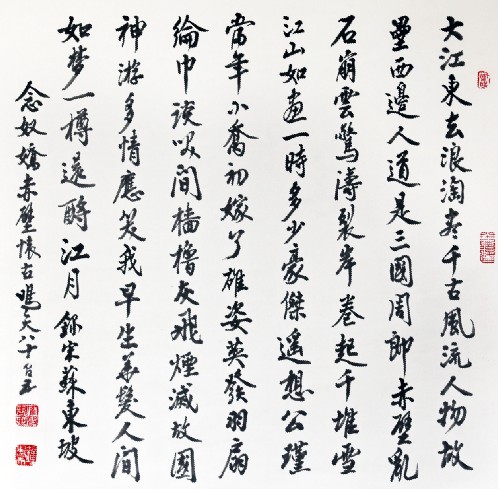 大江東去浪淘尽千古風流人物故
壘西邊人道是三國周郎赤壁亂
石崩雲驚濤裂岸卷起千堆雪
江山如畫一時多少豪傑遙想公瑾
當年小喬初嫁了雄姿英發羽扇
綸巾談笑間檣櫓灰飛煙滅故國
神游多情應笑我早生華髮人間
如梦一樽還酹江月錄宋蘇東坡
念奴嬌赤壁懷古鳴天八十